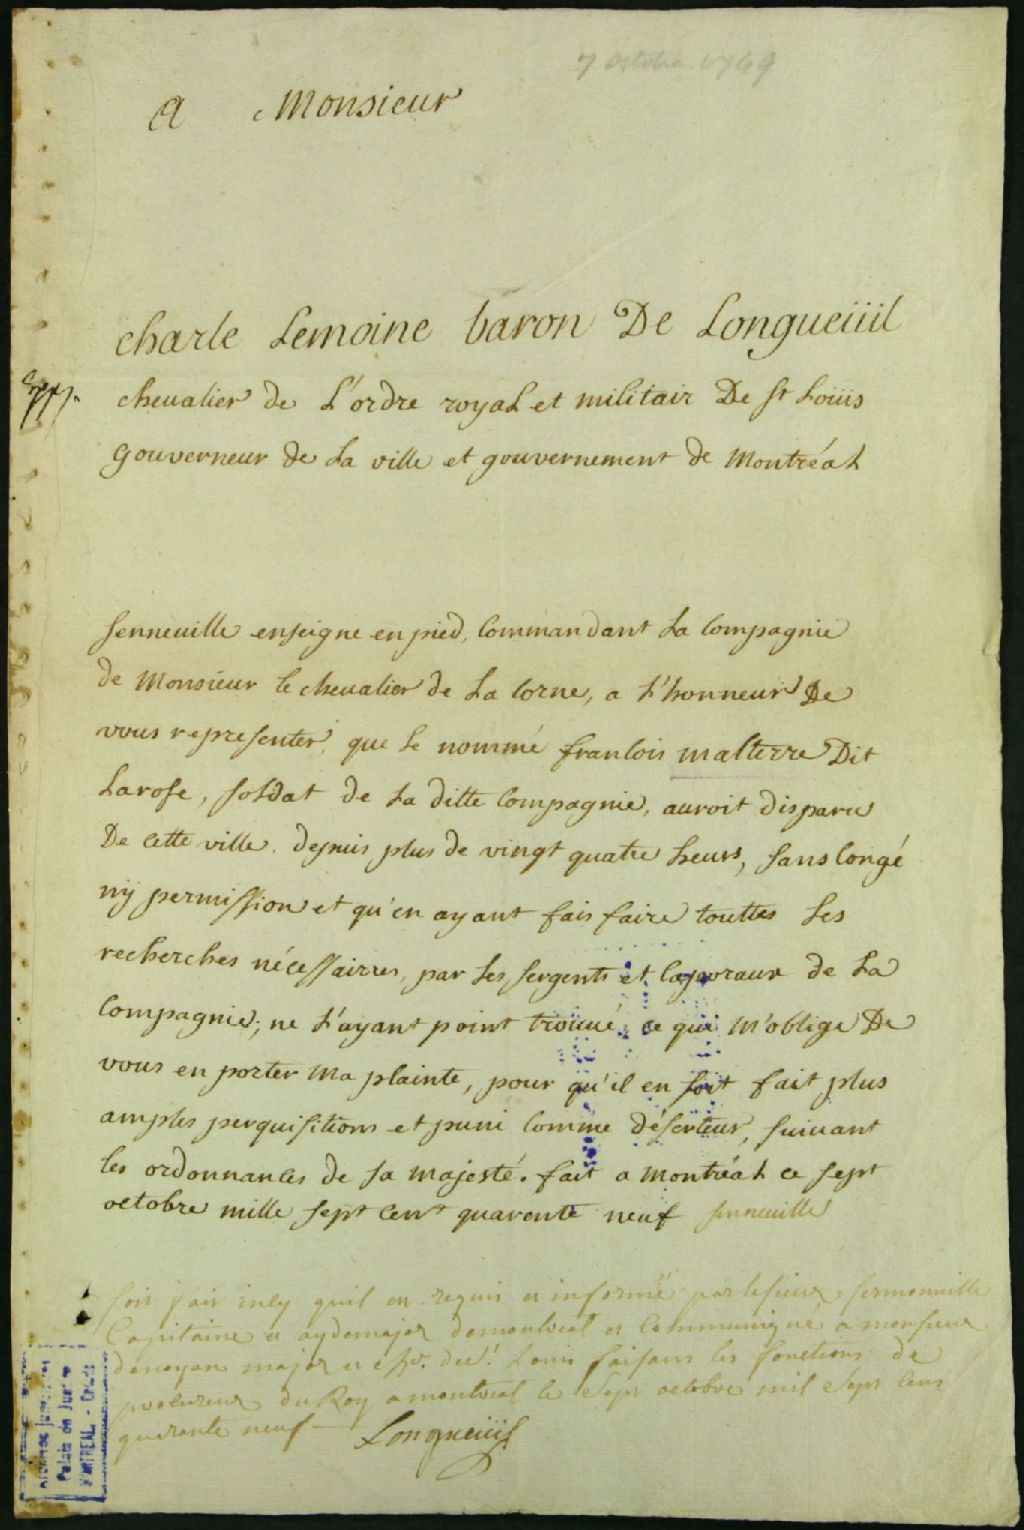 7 octobre 1749
A Monsieur
charle Lemoine baron De Longueüil
chevalier de L'ordre royal et militair De st Loüis
gouverneur de La ville et gouvernement de Montréal
senneuille enseigne en pied, commandant La compagnie
de Monsieur le cheualier de La corne, a L'honneur De
vous representer, que le nommé francois malterre Dit
Larose, soldat de La ditte compagnie, auroit disparu
De cette ville. depuis plus de vingt quatre heurs, sans congé
nÿ permission et qu'en ayant fais faire touttes les
recherches nécessairres, par les sergents et caporaux de La
compagnie; ne L'ayant point trouué, ce qui m'oblige De
vous en porter ma plainte, pour qu'il en soit fait plus
amples perquisitions et puni comme déserteur, suiuant
les ordonnances de sa majesté. fait a Montréal ce sept
octobre mille sept cent quarente neuf senneuille
soit fait quil en requis et informé par le sieur sermonville
Capitaine et aydemajor demontreal et Communiqué a monsieur
denoyan major et cher. de st. Louis faisans les fonctions de
procureur du Roy a montreal le Sept octobre mil Sept cens
quarante neuf Longueüil
Archives judiciaires
Palais de Justice
MONTREAL - QUEBEC